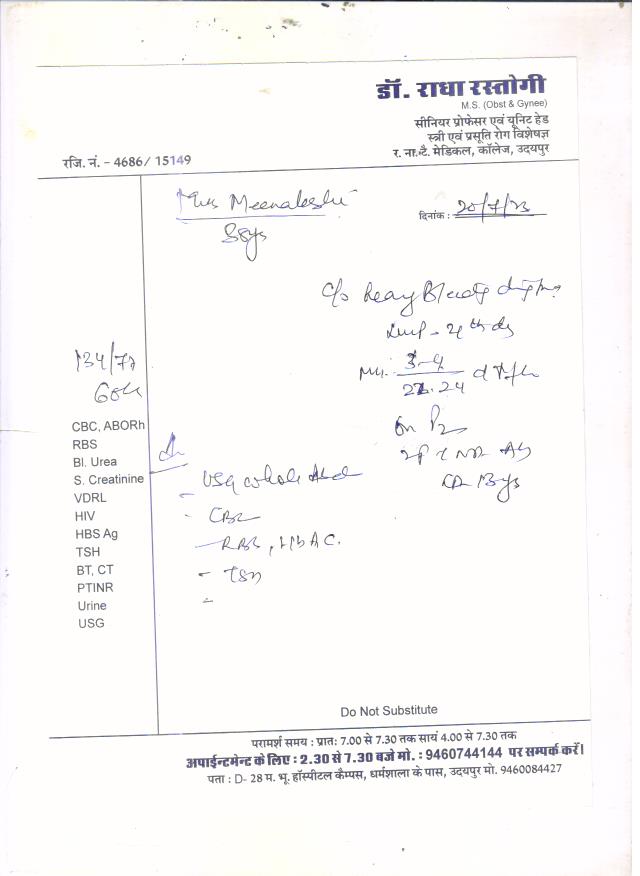 डॉ. राधा रस्तोगी
M.S. (Obst & Gynee)
सीनियर प्रोफेसर एवं यूनिट हेड
स्त्री एवं प्रसूति रोग विशेषज्ञ
र. ना. टै. मेडिकल, कॉलेज, उदयपुर
रजि. नं. - 4686/ 15149
Mrs Meenakshi
दिनांक : 20/7/23
c/o heavy Bleeding
LMP - 4th dy
134/77
3-4
CBC, ABORh
RBS
Bl. Urea
S. Creatinine
VDRL
HIV
HBS Ag
TSH
BT, CT
PTINR
Urine
USG
USG whole Abd
- CBC
- RBS, HbAC.
- TSH
Do Not Substitute
परामर्श समय : प्रातः 7.00 से 7.30 तक सायं 4.00 से 7.30 तक
अपाईन्टमेन्ट के लिए : 2.30 से 7.30 बजे मो. : 9460744144 पर सम्पर्क करें।
पता : D- 28 म. भू. हॉस्पीटल कैम्पस, धर्मशाला के पास, उदयपुर मो. 9460084427